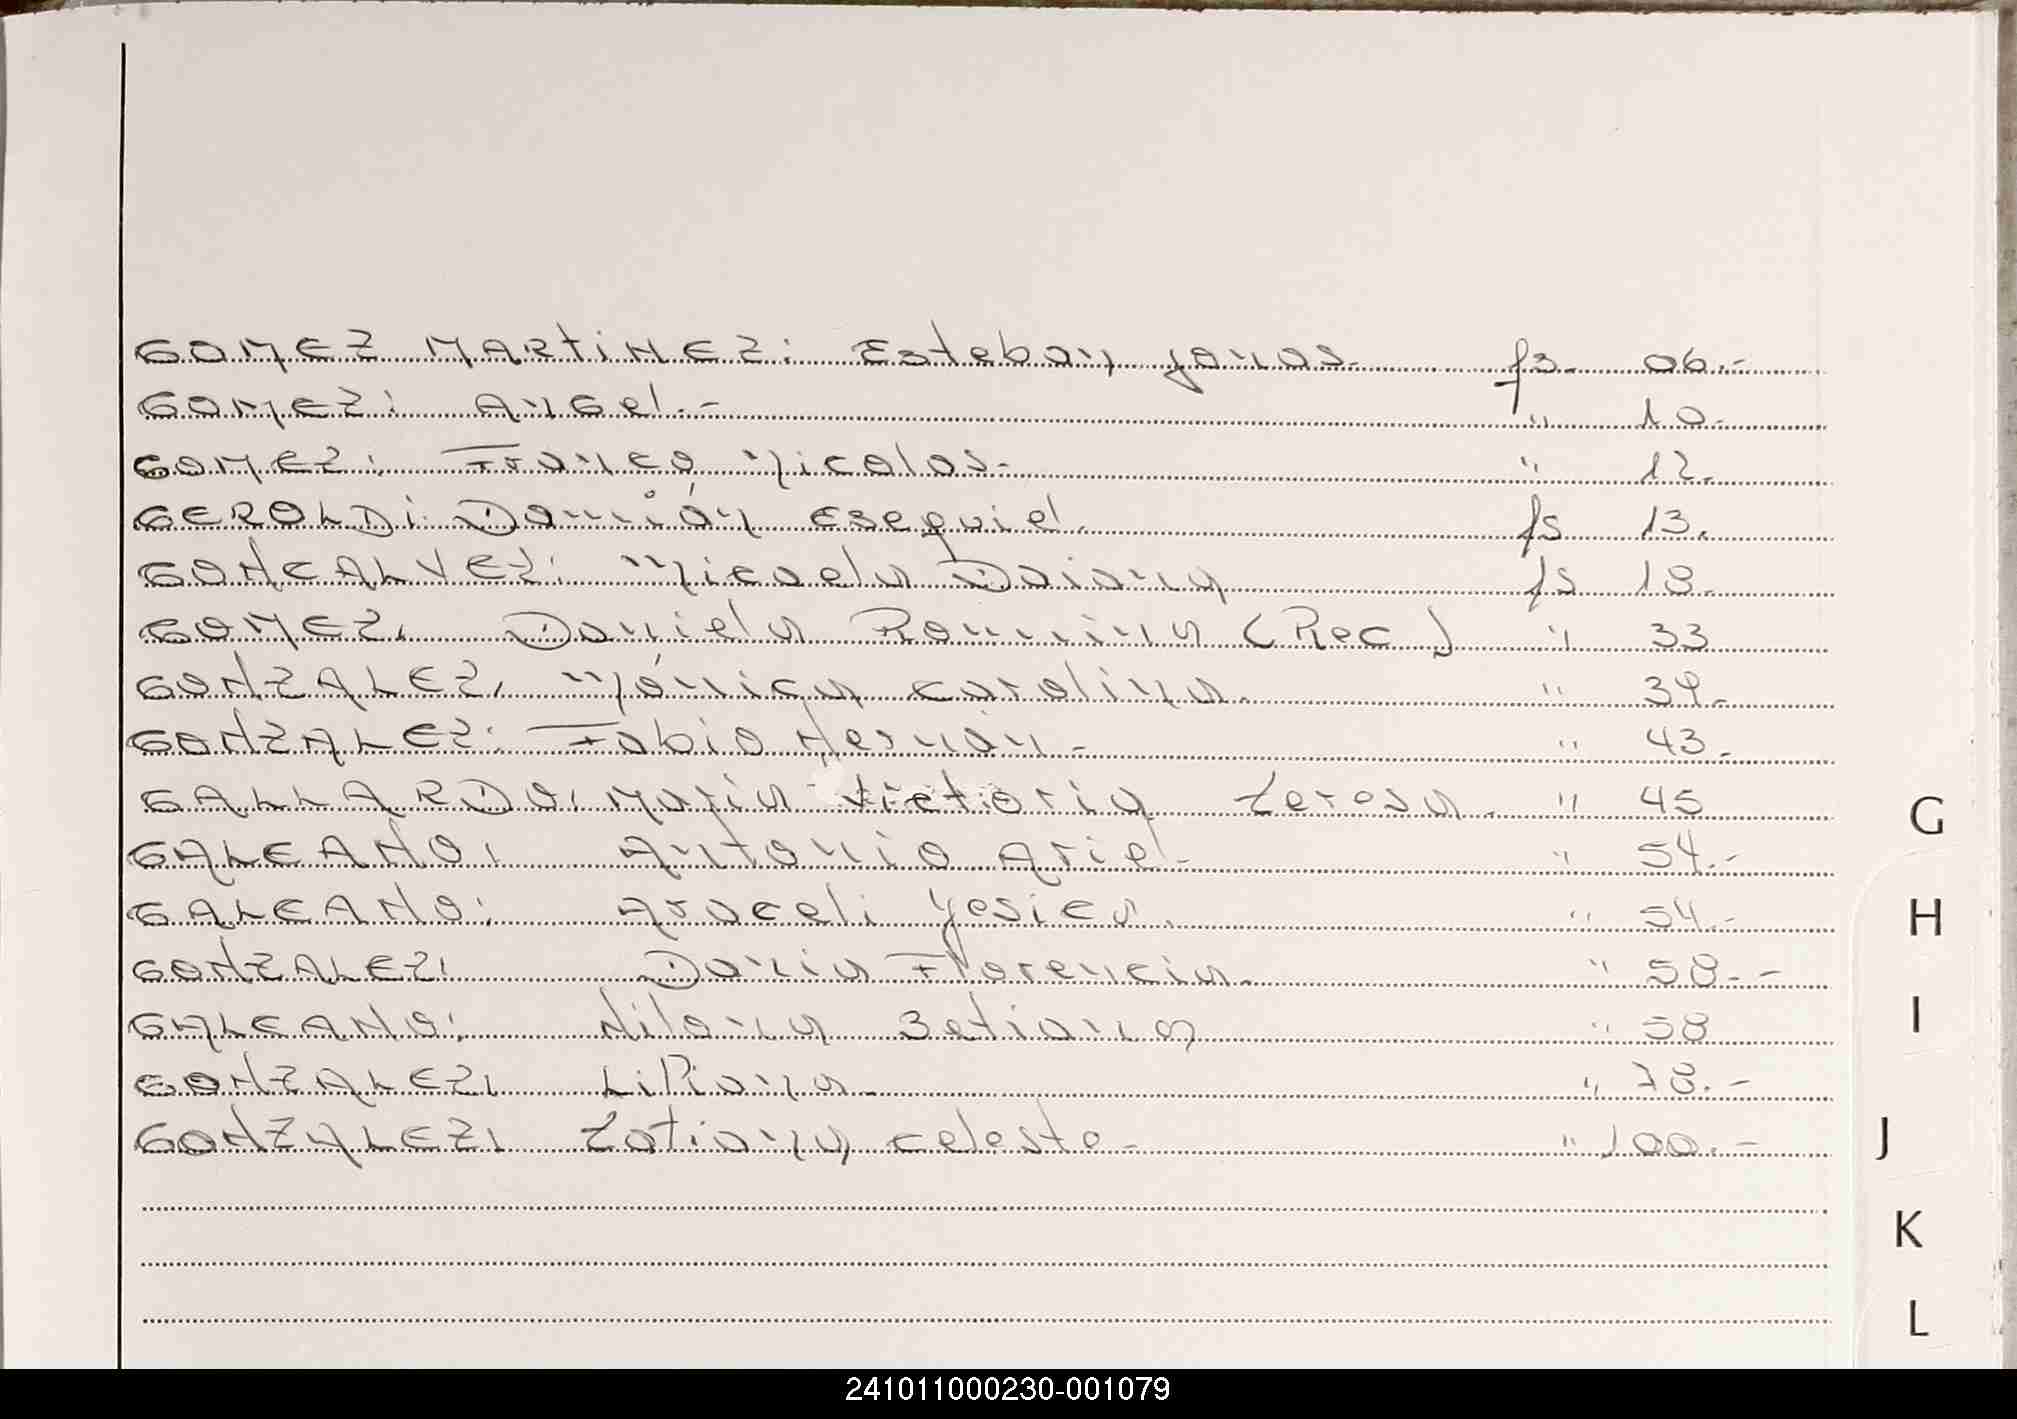 GOMEZ MARTINEZ: Esteban Jonas. fs. 06.-
GOMEZ: Angel.- " 10.-
GOMEZ: Franco Nicolas.- " 12.
GEROLDI: Damián Esequiel. fs 13.
GONCALVEZ: Micaela Daiana fs 18.
GOMEZ, Daniela Romina (Rec) " 33
GONZALEZ, Mónica Carolina. " 39.
GONZALEZ: Fabio Hernán.- " 43.
GALLARDO, Maria Victoria Teresa. " 45
GALEANO, Antonio Ariel.- " 54.-
GALEANO: Araceli Yesica. " 54.-
GONZALEZ, Dania Florencia. " 58.-
GALEANO: Hilana " 58
GONZALEZ, Liliana. " 78.-
GONZALEZ, Tatiana Celeste.- " 100.-
G
H
I
J
K
L
241011000230-001079